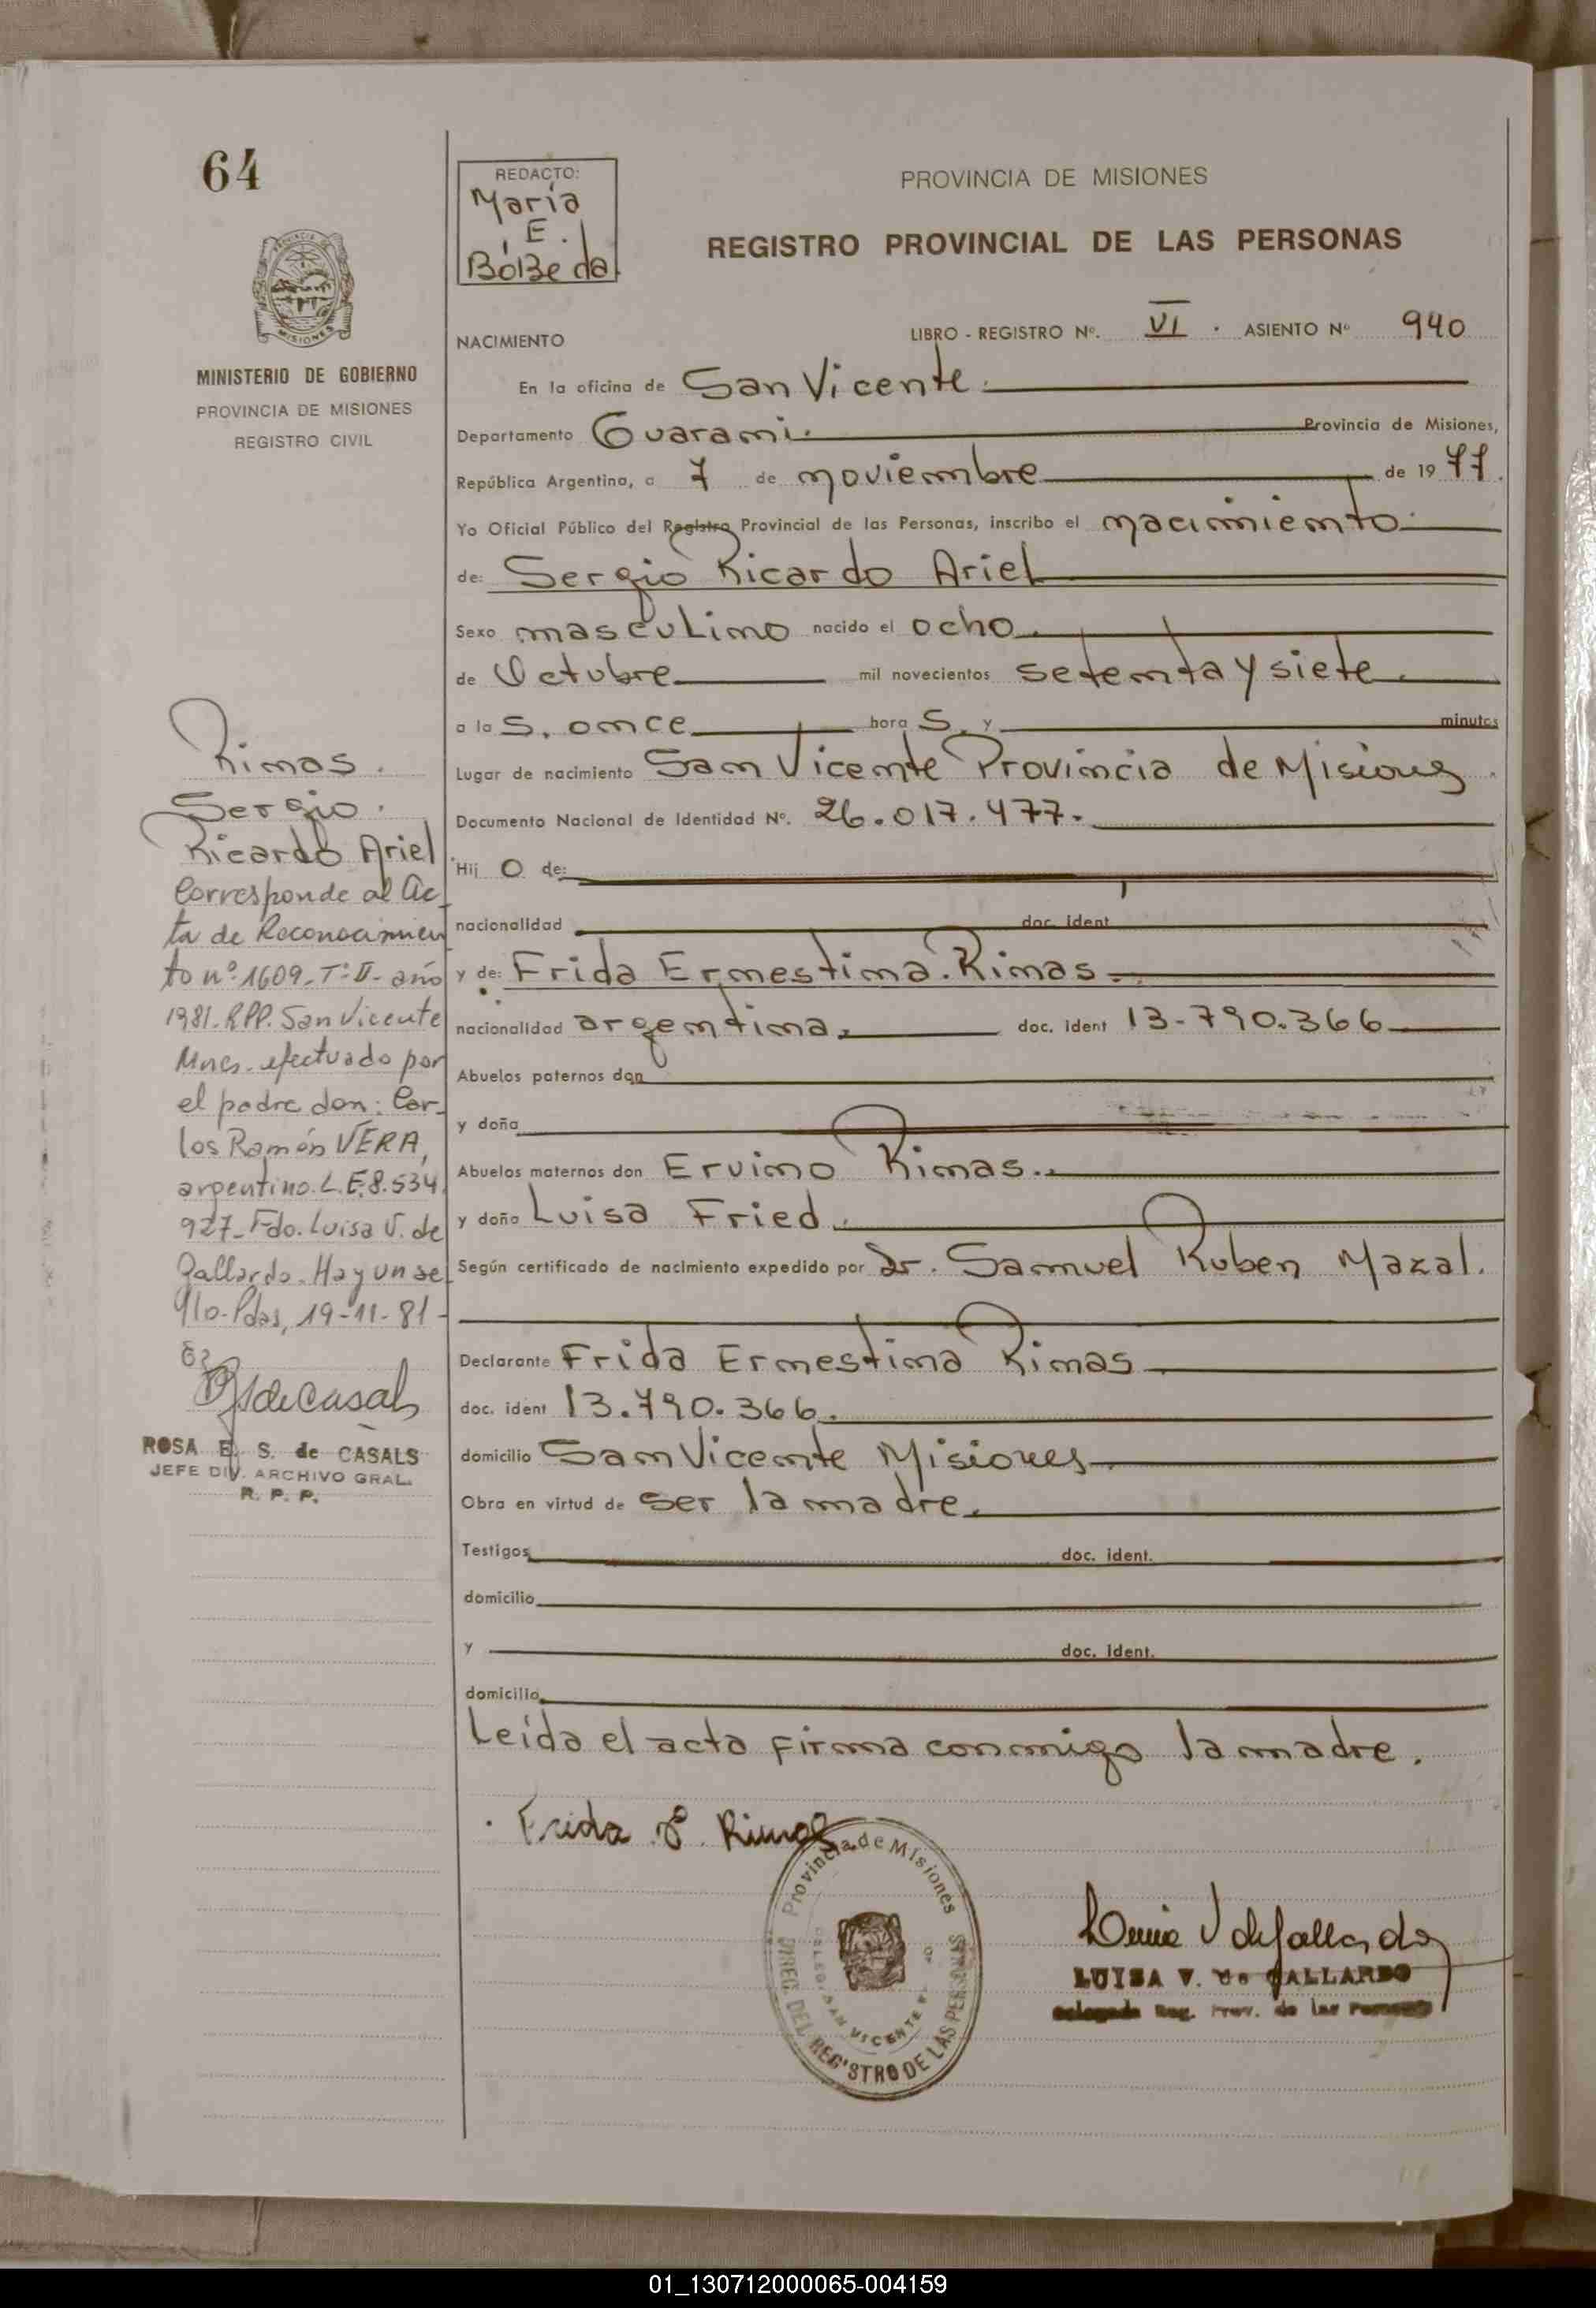 64
REDACTO:
María
E.
Bóbeda
PROVINCIA DE MISIONES
REGISTRO PROVINCIAL DE LAS PERSONAS
PROVINCIA DE
MISIONES
MINISTERIO DE GOBIERNO
PROVINCIA DE MISIONES
REGISTRO CIVIL
NACIMIENTO
LIBRO - REGISTRO Nº. VI . ASIENTO Nº 940
En la oficina de San Vicente.
Departamento Guarami. Provincia de Misiones,
República Argentina, a 7 de noviembre de 19 77.
Yo Oficial Público del Registro Provincial de las Personas, inscribo el nacimiento.
de: Sergio Ricardo Ariel
Sexo masculino nacido el ocho.
de Octubre mil novecientos setenta y siete.
a la S. once hora S. y minutos
Lugar de nacimiento San Vicente Provincia de Misiones.
Documento Nacional de Identidad Nº. 26.017.477.
Hij o de:
nacionalidad doc. ident
y de: Frida Ernestina. Rimas.
nacionalidad argentina. doc. ident 13-790.366
Abuelos paternos don
y doña
Abuelos maternos don Ervino Rimas..
y doña Luisa Fried.
Según certificado de nacimiento expedido por Dr. Samuel Ruben Mazal.
Declarante Frida Ernestina Rimas
doc. ident 13.790.366.
domicilio San Vicente Misiones.
Obra en virtud de ser la madre.
Testigos doc. ident.
domicilio
y doc. ident.
domicilio
Leída el acta firma conmigo la madre.
Frida E. Rimas
Provincia de Misiones
DIREG. DEL REGISTRO DE LAS PERSONAS
SAN VICENTE
Luisa V de Gallardo
LUISA V. de GALLARDO
Delegada Reg. Prov. de las Personas
Rimas.
Sergio.
Ricardo Ariel
Corresponde al Ac-
ta de Reconocimien
to nº 1609-Tº II- año
1981. RPP. San Vicente
Mnes. efectuado por
el padre don: Car-
los Ramón VERA,
argentino. L.E. 8.534.
927- Fdo. Luisa V. de
Gallardo. Hay un se-
llo. Pdas, 19-11-81-
deCasals
ROSA E. S. de CASALS
JEFE DIV. ARCHIVO GRAL.
R. P. P.
01_130712000065-004159